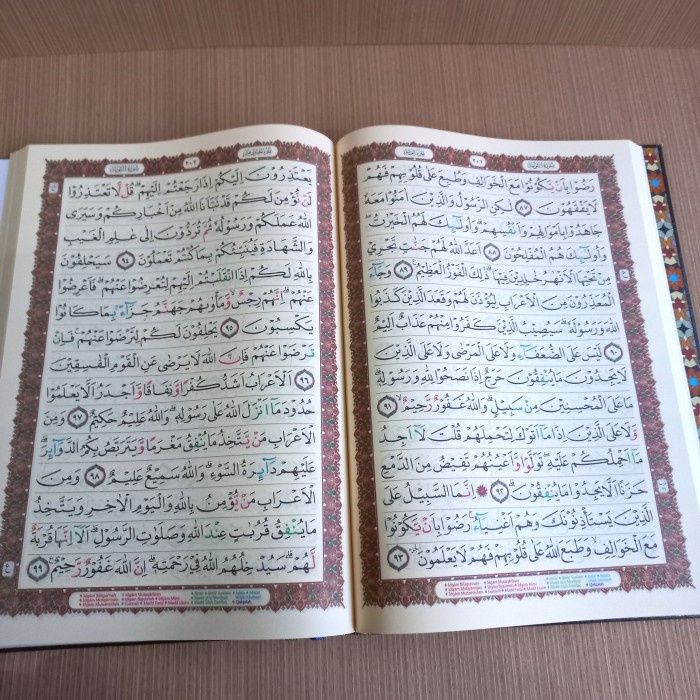 سورة التوبة
٢٠١
رَضُوا بِأَنْ يَكُونُوا مَعَ الْخَوَالِفِ وَطُبِعَ عَلَى قُلُوبِهِمْ فَهُمْ
لَا يَفْقَهُونَ ٨٧ لَكِنِ الرَّسُولُ وَالَّذِينَ آمَنُوا مَعَهُ
جَاهَدُوا بِأَمْوَالِهِمْ وَأَنْفُسِهِمْ وَأُولَئِكَ لَهُمُ الْخَيْرَاتُ
وَأُولَئِكَ هُمُ الْمُفْلِحُونَ ٨٨ أَعَدَّ اللَّهُ لَهُمْ جَنَّاتٍ تَجْرِي
مِنْ تَحْتِهَا الْأَنْهَارُ خَالِدِينَ فِيهَا ذَلِكَ الْفَوْزُ الْعَظِيمُ ٨٩ وَجَاءَ
الْمُعَذِّرُونَ مِنَ الْأَعْرَابِ لِيُؤْذَنَ لَهُمْ وَقَعَدَ الَّذِينَ كَذَبُوا
اللَّهَ وَرَسُولَهُ سَيُصِيبُ الَّذِينَ كَفَرُوا مِنْهُمْ عَذَابٌ أَلِيمٌ
٩٠ لَيْسَ عَلَى الضُّعَفَاءِ وَلَا عَلَى الْمَرْضَى وَلَا عَلَى الَّذِينَ
لَا يَجِدُونَ مَا يُنْفِقُونَ حَرَجٌ إِذَا نَصَحُوا لِلَّهِ وَرَسُولِهِ
مَا عَلَى الْمُحْسِنِينَ مِنْ سَبِيلٍ وَاللَّهُ غَفُورٌ رَّحِيمٌ ٩١
وَلَا عَلَى الَّذِينَ إِذَا مَا أَتَوْكَ لِتَحْمِلَهُمْ قُلْتَ لَا أَجِدُ
مَا أَحْمِلُكُمْ عَلَيْهِ تَوَلَّوْا وَأَعْيُنُهُمْ تَفِيضُ مِنَ الدَّمْعِ
حَزَنًا أَلَّا يَجِدُوا مَا يُنْفِقُونَ ٩٢ إِنَّمَا السَّبِيلُ عَلَى
الَّذِينَ يَسْتَأْذِنُونَكَ وَهُمْ أَغْنِيَاءُ رَضُوا بِأَنْ يَكُونُوا
مَعَ الْخَوَالِفِ وَطَبَعَ اللَّهُ عَلَى قُلُوبِهِمْ فَهُمْ لَا يَعْلَمُونَ ٩٣
سورة التوبة
٢٠٢
يَعْتَذِرُونَ إِلَيْكُمْ إِذَا رَجَعْتُمْ إِلَيْهِمْ قُلْ لَا تَعْتَذِرُوا
لَنْ نُؤْمِنَ لَكُمْ قَدْ نَبَّأَنَا اللَّهُ مِنْ أَخْبَارِكُمْ وَسَيَرَى
اللَّهُ عَمَلَكُمْ وَرَسُولُهُ ثُمَّ تُرَدُّونَ إِلَى عَالِمِ الْغَيْبِ
وَالشَّهَادَةِ فَيُنَبِّئُكُمْ بِمَا كُنْتُمْ تَعْمَلُونَ ٩٤ سَيَحْلِفُونَ
بِاللَّهِ لَكُمْ إِذَا انْقَلَبْتُمْ إِلَيْهِمْ لِتُعْرِضُوا عَنْهُمْ فَأَعْرِضُوا
عَنْهُمْ إِنَّهُمْ رِجْسٌ وَمَأْوَاهُمْ جَهَنَّمُ جَزَاءً بِمَا كَانُوا
يَكْسِبُونَ ٩٥ يَحْلِفُونَ لَكُمْ لِتَرْضَوْا عَنْهُمْ فَإِنْ
تَرْضَوْا عَنْهُمْ فَإِنَّ اللَّهَ لَا يَرْضَى عَنِ الْقَوْمِ الْفَاسِقِينَ
٩٦ الْأَعْرَابُ أَشَدُّ كُفْرًا وَنِفَاقًا وَأَجْدَرُ أَلَّا يَعْلَمُوا
حُدُودَ مَا أَنْزَلَ اللَّهُ عَلَى رَسُولِهِ وَاللَّهُ عَلِيمٌ حَكِيمٌ ٩٧ وَمِنَ
الْأَعْرَابِ مَنْ يَتَّخِذُ مَا يُنْفِقُ مَغْرَمًا وَيَتَرَبَّصُ بِكُمُ الدَّوَائِرَ
عَلَيْهِمْ دَائِرَةُ السَّوْءِ وَاللَّهُ سَمِيعٌ عَلِيمٌ ٩٨ وَمِنَ
الْأَعْرَابِ مَنْ يُؤْمِنُ بِاللَّهِ وَالْيَوْمِ الْآخِرِ وَيَتَّخِذُ
مَا يُنْفِقُ قُرُبَاتٍ عِنْدَ اللَّهِ وَصَلَوَاتِ الرَّسُولِ أَلَا إِنَّهَا قُرْبَةٌ
لَهُمْ سَيُدْخِلُهُمُ اللَّهُ فِي رَحْمَتِهِ إِنَّ اللَّهَ غَفُورٌ رَّحِيمٌ ٩٩